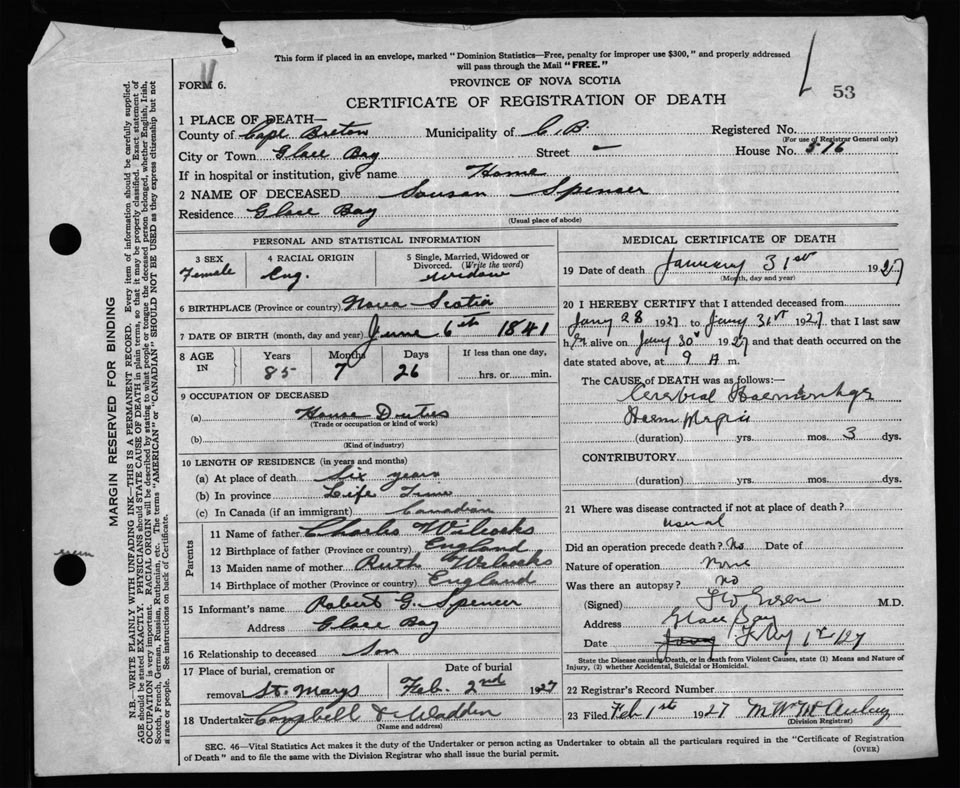 This form if placed in an envelope, marked "Dominion Statistics—Free, penalty for improper use $300," and properly addressed
will pass through the Mail "FREE."
FORM 6.
PROVINCE OF NOVA SCOTIA
53
CERTIFICATE OF REGISTRATION OF DEATH
1 PLACE OF DEATH—
County of Cape Breton Municipality of C.B. Registered No.
(For use of Registrar General only)
City or Town Glace Bay Street – House No. 576
If in hospital or institution, give name Home
2 NAME OF DECEASED Sousan Spenser
Residence Glace Bay
(Usual place of abode)
PERSONAL AND STATISTICAL INFORMATION
3 SEX
Female
4 RACIAL ORIGIN
Eng.
5 Single, Married, Widowed or
Divorced. (Write the word)
Widow
6 BIRTHPLACE (Province or country) Nova Scotia
7 DATE OF BIRTH (month, day and year) June 6th 1841
8 AGE IN
Years Months Days If less than one day,
85 7 26 hrs. or min.
9 OCCUPATION OF DECEASED
(a) House Duties
(Trade or occupation or kind of work)
(b)
(Kind of industry)
10 LENGTH OF RESIDENCE (in years and months)
(a) At place of death Six years
(b) In province Life Time
(c) In Canada (if an immigrant) Canadian
Parents
11 Name of father Charles Wilcocks
12 Birthplace of father (Province or country) England
13 Maiden name of mother Ruth Wilcocks
14 Birthplace of mother (Province or country) England
15 Informant's name Robert G. Spencer
Address Glace Bay
16 Relationship to deceased Son
17 Place of burial, cremation or Date of burial
removal St. Marys Feb. 2nd 1927
18 Undertaker Campbell & Wadden
(Name and address)
MEDICAL CERTIFICATE OF DEATH
19 Date of death January 31st 1927
(Month, day and year)
20 I HEREBY CERTIFY that I attended deceased from
Jany 28 1927 to Jany 31st 1927, that I last saw
her alive on Jany 30 1927 and that death occurred on the
date stated above, at 9 A m.
The CAUSE OF DEATH was as follows:
Cerebral Haemorrhage
(duration) yrs. mos. 3 dys.
CONTRIBUTORY
(duration) yrs. mos. dys.
21 Where was disease contracted if not at place of death?
usual
Did an operation precede death? No Date of
Nature of operation None
Was there an autopsy? no
(Signed) M.D.
Address Glace Bay
Date Jany Feby 1st /27
State the Disease causing Death, or in death from Violent Causes, state (1) Means and Nature of
Injury, (2) whether Accidental, Suicidal or Homicidal.
22 Registrar's Record Number
23 Filed Feb 1st 1927
(Division Registrar)
SEC. 46—Vital Statistics Act makes it the duty of the Undertaker or person acting as Undertaker to obtain all the particulars required in the "Certificate of Registration
of Death" and to file the same with the Division Registrar who shall issue the burial permit.
(OVER)
MARGIN RESERVED FOR BINDING
N.B.—WRITE PLAINLY WITH UNFADING INK—THIS IS A PERMANENT RECORD. Every item of information should be carefully supplied.
AGE should be stated EXACTLY. PHYSICIANS should STATE CAUSE OF DEATH in plain terms, so that it may be properly classified. Exact statement of
OCCUPATION is very important. RACIAL ORIGIN will be described by stating to what people or tongue the deceased person belonged, whether English, Irish,
Scotch, French, German, Russian, Ruthenian, etc. The terms "AMERICAN" or "CANADIAN" SHOULD NOT BE USED as they express citizenship but not
a race or people. See instructions on back of Certificate.